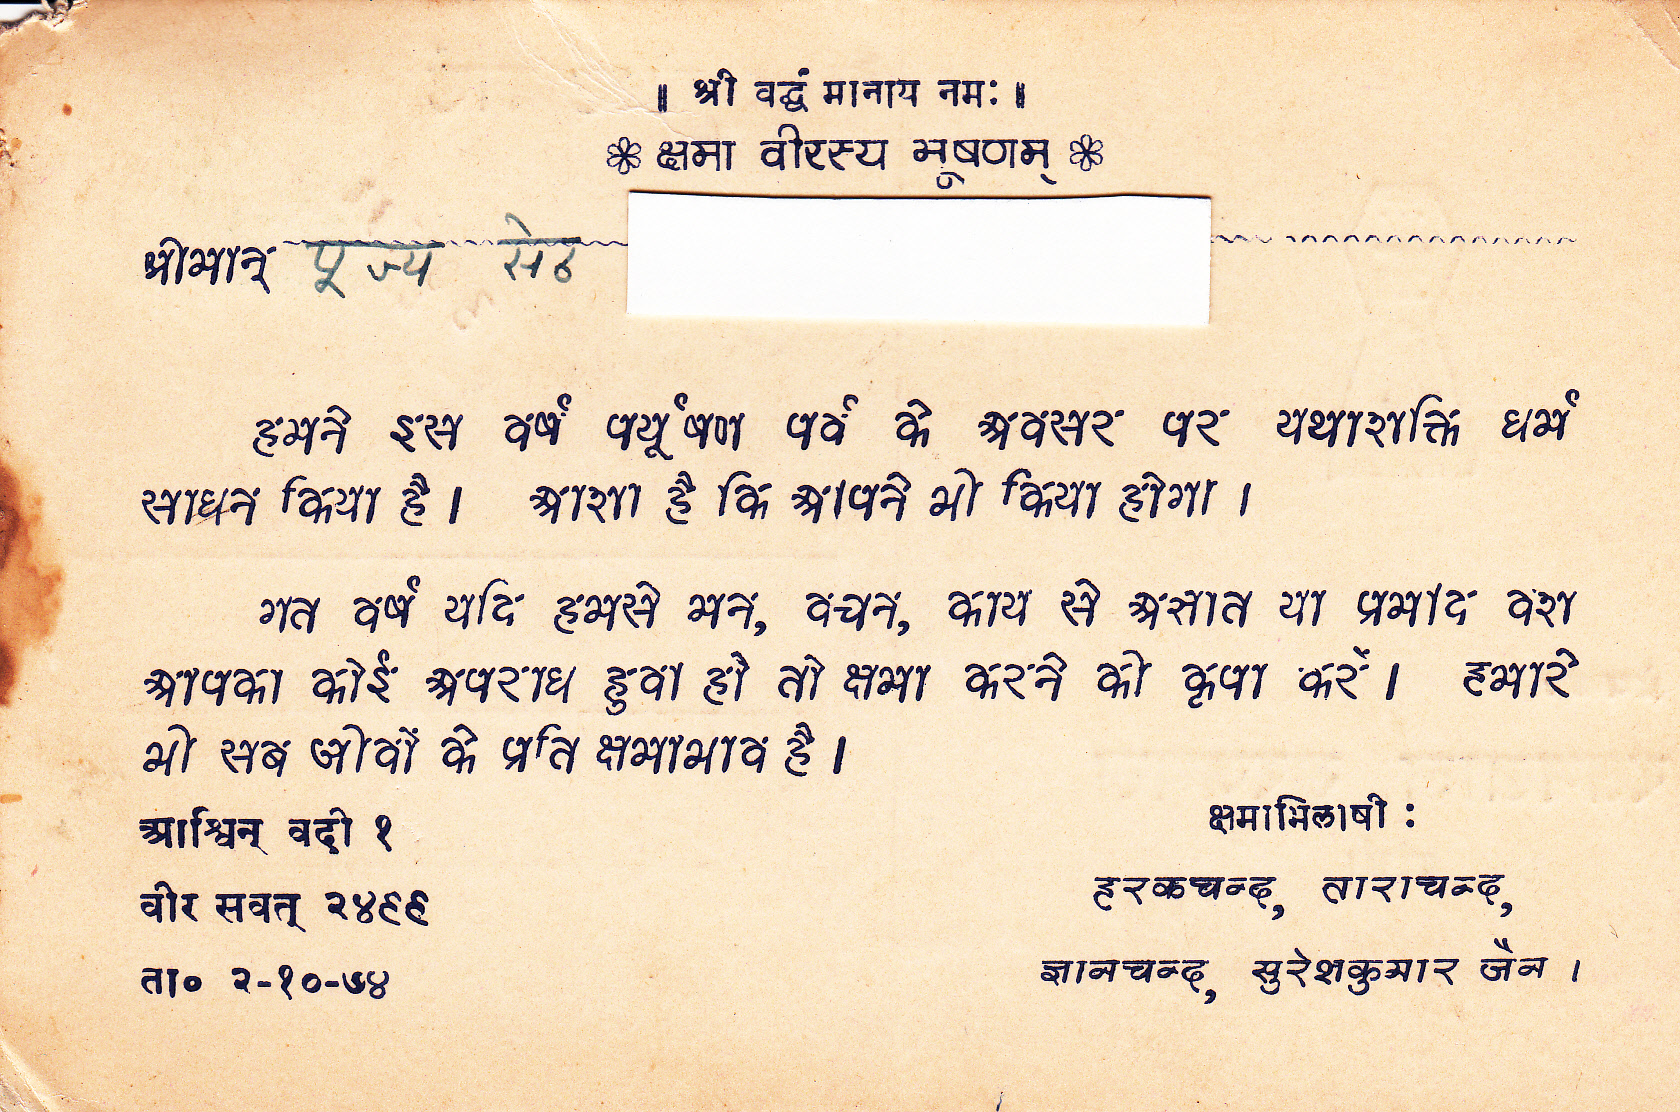 ॥ श्री वर्द्धं मानाय नमः ॥
क्षमा वीरस्य भूषणम्
श्रीमान् पूज्य सेठ
हमने इस वर्ष पर्यूषण पर्व के अवसर पर यथाशक्ति धर्म
साधन किया है । आशा है कि आपने भी किया होगा ।
गत वर्ष यदि हमसे मन, वचन, काय से अज्ञात या प्रमाद वश
आपका कोई अपराध हुवा हो तो क्षमा करने की कृपा करें । हमारे
भी सब जीवों के प्रति क्षमाभाव है ।
आश्विन् वदी १
वीर सवत् २४९९
ता० २-१०-७४
क्षमाभिलाषी :
हरकचन्द, ताराचन्द,
ज्ञानचन्द, सुरेशकुमार जैन ।